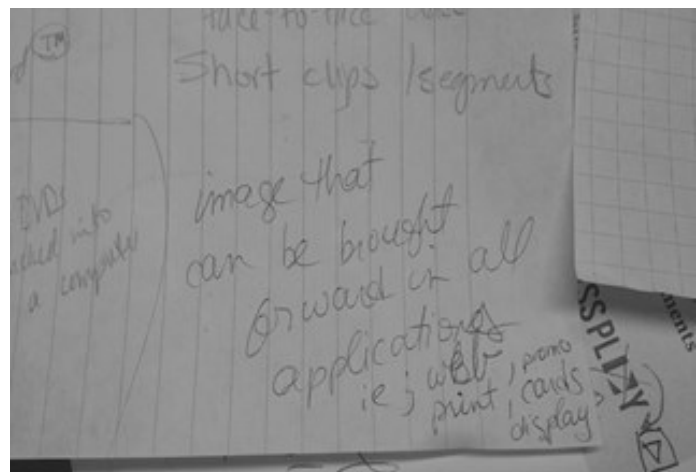 TM
face-to-face
Short clips / segments
DVDs
into
a computer
image that
can be brought
forward in all
applications
ie; web
print, promo
, cards
display
SSPL
ments